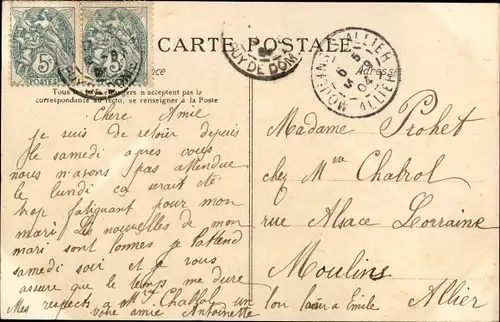 CARTE POSTALE
Tous les pays étrangers n'acceptent pas la
correspondance au recto, se renseigner à la Poste
Adresse
PUY DE DOME
MOULINS-S-ALLIER
ALLIER
5
POSTES
Chere Amie
je suis de retoir depuis
le samedi apres vous
nous n'avons pas attendue
le lundi ça serait été
trop fatiguant pour mon
mari Les nouvelles de mon
mari sont bonnes je l'attend
samedi soir et je vous
assure que le temps me dure
Mes respects a Mme Chabrol un bon baiser a Emile
votre amie Antoinette
Madame Prohet
chez Mme Chabrol
rue Alsace Lorraine
Moulins
Allier